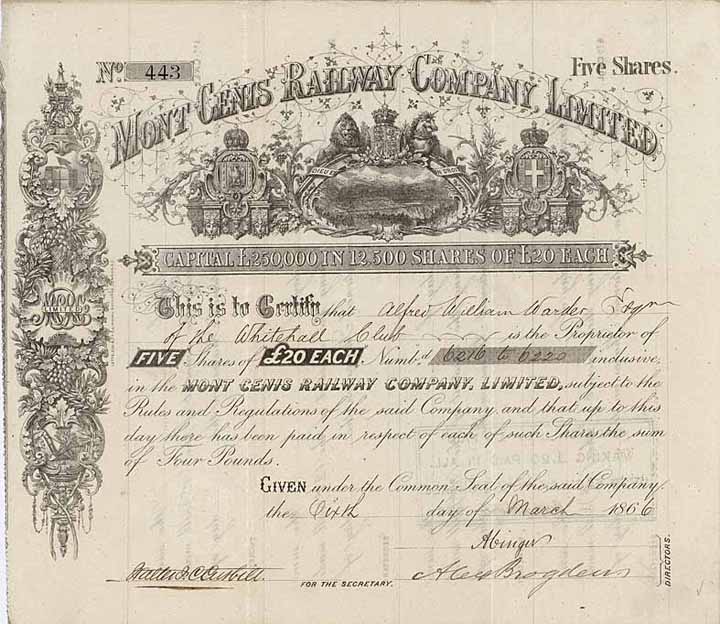 No. 443
Five Shares.
MONT CENIS RAILWAY COMPANY, LIMITED.
DIEU ET MON DROIT
CAPITAL £250,000 IN 12,500 SHARES OF £20 EACH
LIMITED
This is to Certify that Alfred William Warder Esqre
of the Whitehall Club is the Proprietor of
FIVE Shares of £20 EACH. Numbd. 6216 to 6220 inclusive,
in the MONT CENIS RAILWAY COMPANY, LIMITED, subject to the
Rules and Regulations of the said Company, and that up to this
day there has been paid in respect of each of such Shares the sum
of Four Pounds.
GIVEN under the Common Seal of the said Company,
the Sixth day of March 1866
Abinger
Alex Brogden
DIRECTORS.
FOR THE SECRETARY.